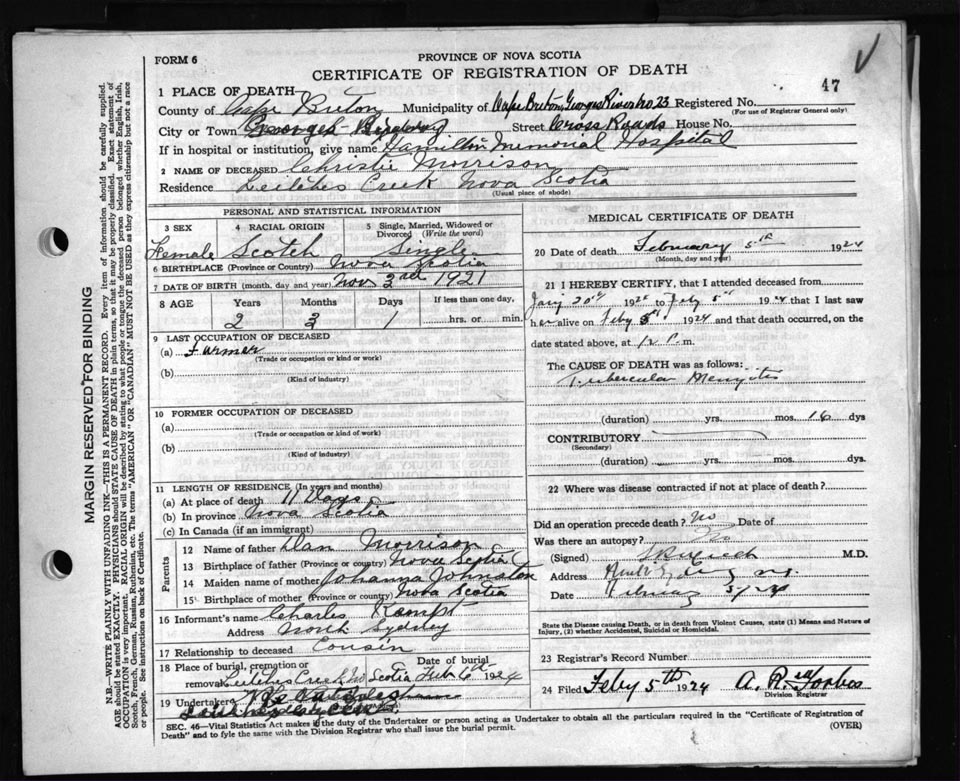 PROVINCE OF NOVA SCOTIA
FORM 6
CERTIFICATE OF REGISTRATION OF DEATH
47
1 PLACE OF DEATH
County of Cape Breton Municipality of Cape Breton, Georges River No. 23 Registered No.
(For use of Registrar General only)
City or Town Georges River Street Cross Roads House No.
If in hospital or institution, give name Hamilton Memorial Hospital
2 NAME OF DECEASED Christie Morrison
Residence Leitches Creek Nova Scotia
(Usual place of abode)
PERSONAL AND STATISTICAL INFORMATION
3 SEX 4 RACIAL ORIGIN 5 Single, Married, Widowed or Divorced (Write the word)
Female Scotch Single
6 BIRTHPLACE (Province or Country) Nova Scotia
7 DATE OF BIRTH (month, day and year) Nov 3rd 1921
8 AGE Years Months Days If less than one day,
2 3 1 hrs. or min.
9 LAST OCCUPATION OF DECEASED
(a) Farmer
(Trade or occupation or kind or work)
(b)
(Kind of industry)
10 FORMER OCCUPATION OF DECEASED
(a)
(Trade or occupation or kind or work)
(b)
(Kind of industry)
11 LENGTH OF RESIDENCE (In years and months)
(a) At place of death 11 Days
(b) In province Nova Scotia
(c) In Canada (if an immigrant)
Parents
12 Name of father Dan Morrison
13 Birthplace of father (Province or country) Nova Scotia
14 Maiden name of mother Johanna Johnston
15 Birthplace of mother (Province or country) Nova Scotia
16 Informant's name Charles
Address North Sydney
17 Relationship to deceased Cousin
18 Place of burial, cremation or removal Date of burial
Leitches Creek No Scotia Feb 6th 1924
19 Undertaker
MEDICAL CERTIFICATE OF DEATH
20 Date of death February 5th 1924
(Month, day and year)
21 I HEREBY CERTIFY, that I attended deceased from
Jany 20th 192 to Feby 5th 1924 that I last saw
her alive on Feby 5th 1924 and that death occurred, on the
date stated above, at 12 P.m.
The CAUSE OF DEATH was as follows:
Tubercular Mengitis
(duration) yrs. mos. 16 dys
CONTRIBUTORY
(Secondary)
(duration) yrs. mos. dys.
22 Where was disease contracted if not at place of death?
Did an operation precede death? No Date of
Was there an autopsy? No
(Signed) M.D.
Address
Date February 5/24
State the Disease causing Death, or in death from Violent Causes, state (1) Means and Nature of
Injury, (2) whether Accidental, Suicidal or Homicidal.
23 Registrar's Record Number
24 Filed Feby 5th 1924 A. R. Forbes
Division Registrar
SEC. 46—Vital Statistics Act makes it the duty of the Undertaker or person acting as Undertaker to obtain all the particulars required in the "Certificate of Registration of
Death" and to fyle the same with the Division Registrar who shall issue the burial permit. (OVER)
MARGIN RESERVED FOR BINDING
N.B.—WRITE PLAINLY WITH UNFADING INK—THIS IS A PERMANENT RECORD. Every item of information should be carefully supplied.
AGE should be stated EXACTLY. PHYSICIANS should STATE CAUSE OF DEATH in plain terms, so that it may be properly classified. Exact statement of
OCCUPATION is very important. RACIAL ORIGIN will be described by stating to what people or tongue the deceased person belonged whether English, Irish,
Scotch, French, German, Russian, Ruthenian, etc. The terms "AMERICAN" OR "CANADIAN" MUST NOT BE USED as they express citizenship but not a race
or people. See instructions on back of Certificate.